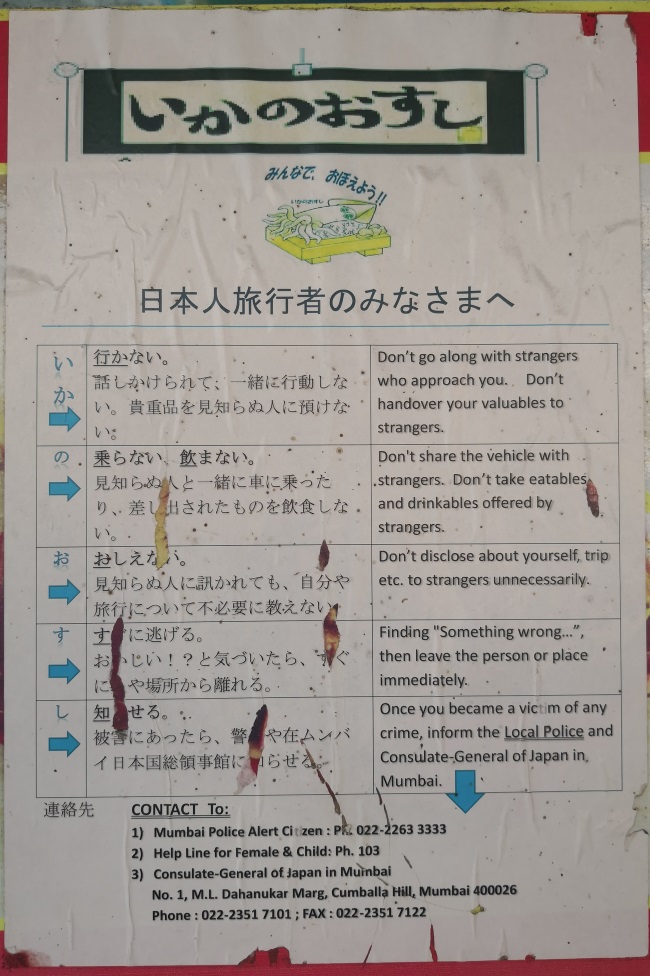 いかのおすし
みんなで、おぼえよう!!
いかのおすし
日本人旅行者のみなさまへ
いか
行かない。
話しかけられて、一緒に行動しな
い。貴重品を見知らぬ人に預けな
い。
Don't go along with strangers
who approach you. Don't
handover your valuables to
strangers.
の
乗らない、飲まない。
見知らぬ人と一緒に車に乗った
り、差し出されたものを飲食しな
い。
Don't share the vehicle with
strangers. Don't take eatables
and drinkables offered by
strangers.
お
おしえない。
見知らぬ人に訊かれても、自分や
旅行について不必要に教えない。
Don't disclose about yourself, trip
etc. to strangers unnecessarily.
す
すぐに逃げる。
おかしい!?と気づいたら、すぐ
に や場所から離れる。
Finding "Something wrong...",
then leave the person or place
immediately.
し
知らせる。
被害にあったら、警 や在ムンバ
イ日本国総領事館に知らせる。
Once you became a victim of any
crime, inform the Local Police and
Consulate-General of Japan in,
Mumbai.
連絡先
CONTACT To:
1) Mumbai Police Alert Citizen : Ph. 022-2263 3333
2) Help Line for Female & Child: Ph. 103
3) Consulate-General of Japan in Mumbai
No. 1, M.L. Dahanukar Marg, Cumballa Hill, Mumbai 400026
Phone : 022-2351 7101 ; FAX : 022-2351 7122